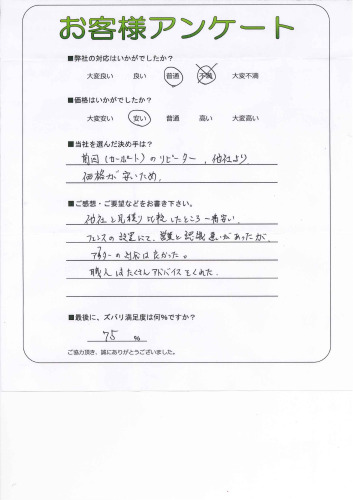 お客様アンケート
■弊社の対応はいかがでしたか？
大変良い 良い 普通 不満 大変不満
■価格はいかがでしたか？
大変安い 安い 普通 高い 大変高い
■当社を選んだ決め手は？
前回(カーポート)のリピーター、他社より
価格が安いため。
■ご感想・ご要望などをお書き下さい。
他社と見積り比較したところ一番安い、
フェンスの設置にて、営業と認識違いがあったが、
アフターの対応は良かった。
職人はたくさんアドバイスをくれた。
■最後に、ズバリ満足度は何％ですか？
75 %
ご協力頂き、誠にありがとうございました。